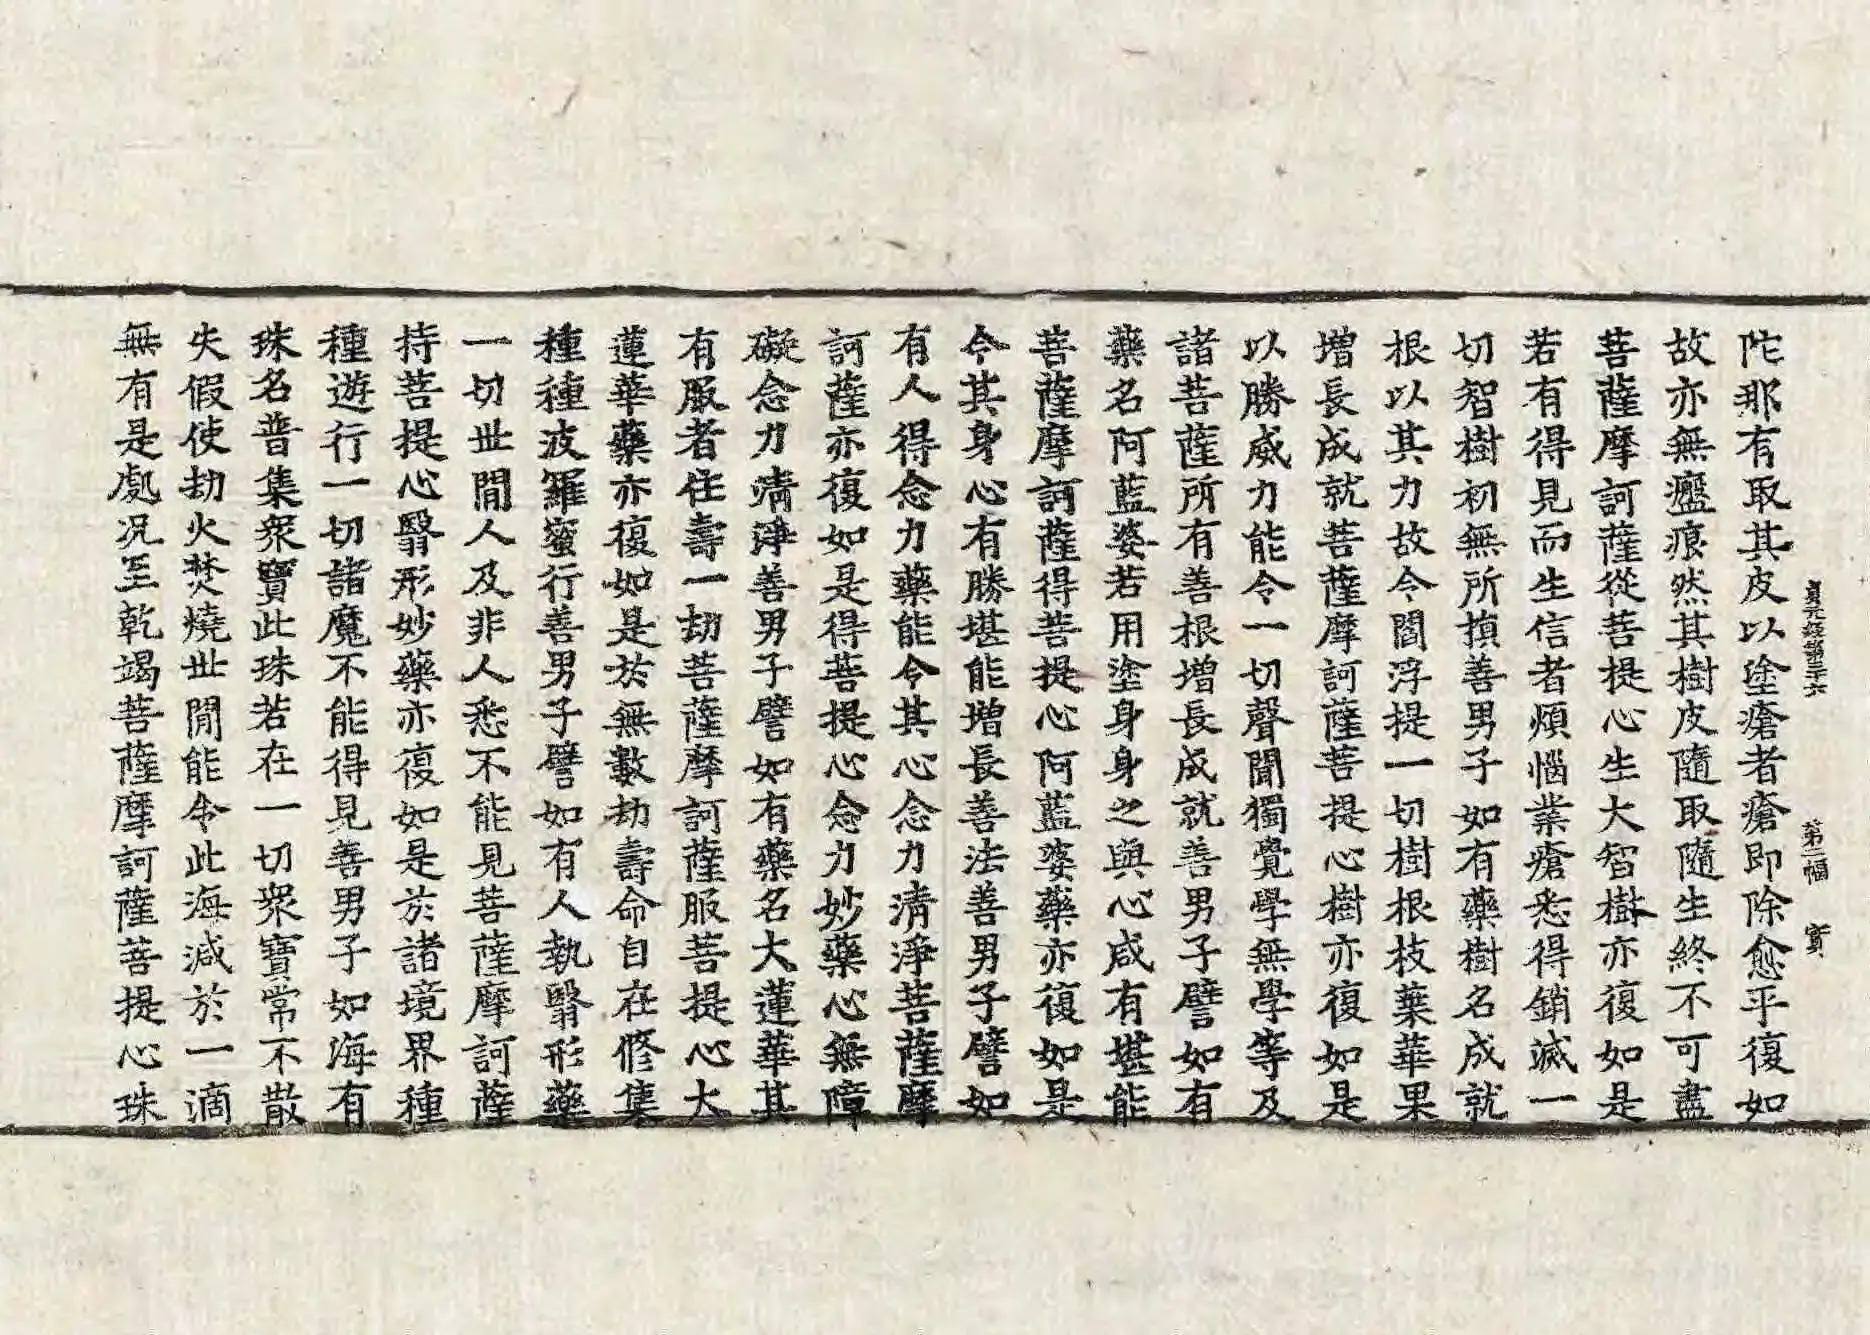 貞元經第三十六 第二幅 寳
陀那有取其皮以塗瘡者瘡即除愈平復如
故亦無瘢痕然其樹皮隨取隨生終不可盡
菩薩摩訶薩從菩提心生大智樹亦復如是
若有得見而生信者煩惱業瘡悉得銷滅一
切智樹初無所損善男子如有藥樹名成就
根以其力故令閻浮提一切樹根枝葉華果
增長成就菩薩摩訶薩菩提心樹亦復如是
以勝威力能令一切聲聞獨覺學無學等及
諸菩薩所有善根增長成就善男子譬如有
藥名阿藍婆若用塗身身之與心咸有堪能
菩薩摩訶薩得菩提心阿藍婆藥亦復如是
令其身心有勝堪能增長善法善男子譬如
有人得念力藥能令其心念力清淨菩薩摩
訶薩亦復如是得菩提心念力妙藥心無障
礙念力清淨善男子譬如有藥名大蓮華其
有服者住壽一劫菩薩摩訶薩服菩提心大
蓮華藥亦復如是於無數劫壽命自在修集
種種波羅蜜行善男子譬如有人執翳形藥
一切世間人及非人悉不能見菩薩摩訶薩
持菩提心翳形妙藥亦復如是於諸境界種
種遊行一切諸魔不能得見善男子如海有
珠名普集衆寶此珠若在一切衆寶常不散
失假使劫火焚燒世間能令此海減於一滴
無有是處况至乾竭菩薩摩訶薩菩提心珠